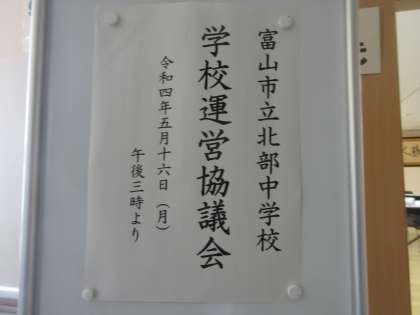 富山市立北部中学校
学校運営協議会
令和四年五月十六日（月）
午後三時より